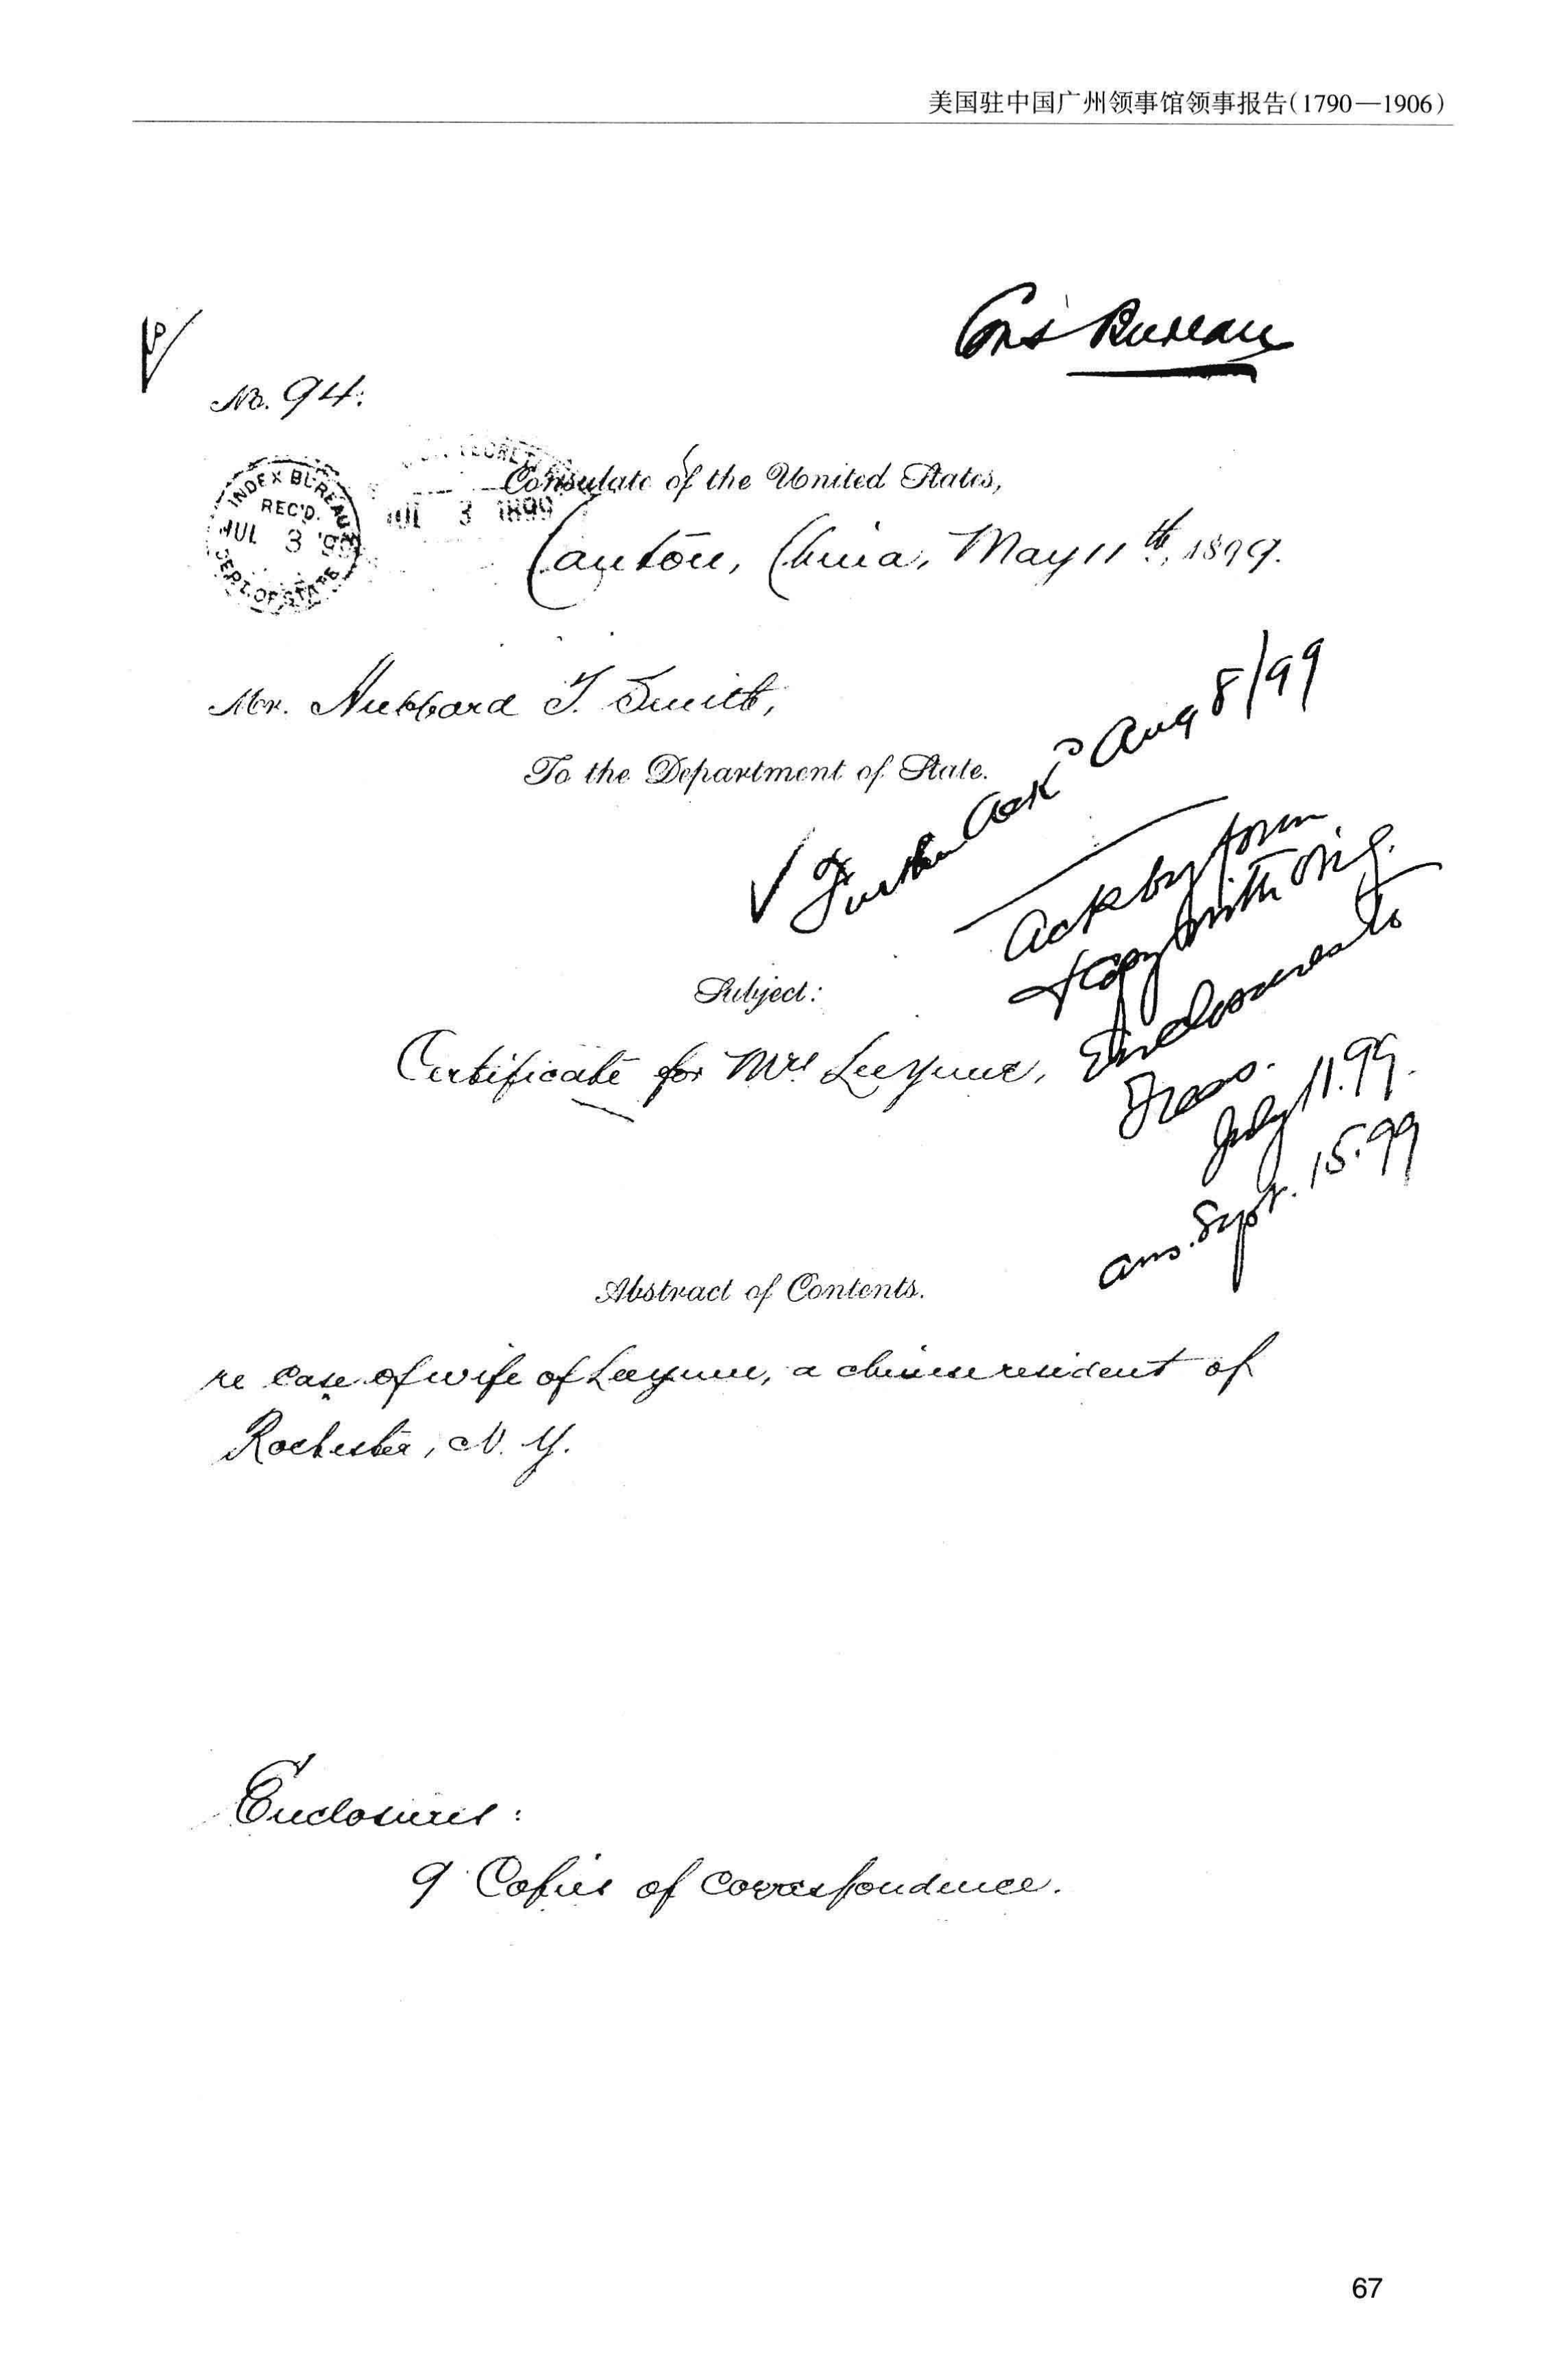 美国驻中国广州领事馆领事报告(1790—1906)
Cons Bureau
No. 94.
INDEX BUREAU
REC'D.
JUL 3 '99
DEPT. OF STATE
JUL 3 1899
Consulate of the United States,
Canton, China, May 11th, 1899.
Mr. Hubbard T. Smith,
To the Department of State.
Further Ack'd Aug 8/99
Ack by form
& copy with orig.
Enclosures to
Treas.
July 11.99.
ans. Sept. 15.99
Subject:
Certificate for Mrs Lee Yune,
Abstract of Contents.
re case of wife of Lee Yune, a chinese resident of
Rochester, N. Y.
Enclosures:
9 Copies of correspondence.
67